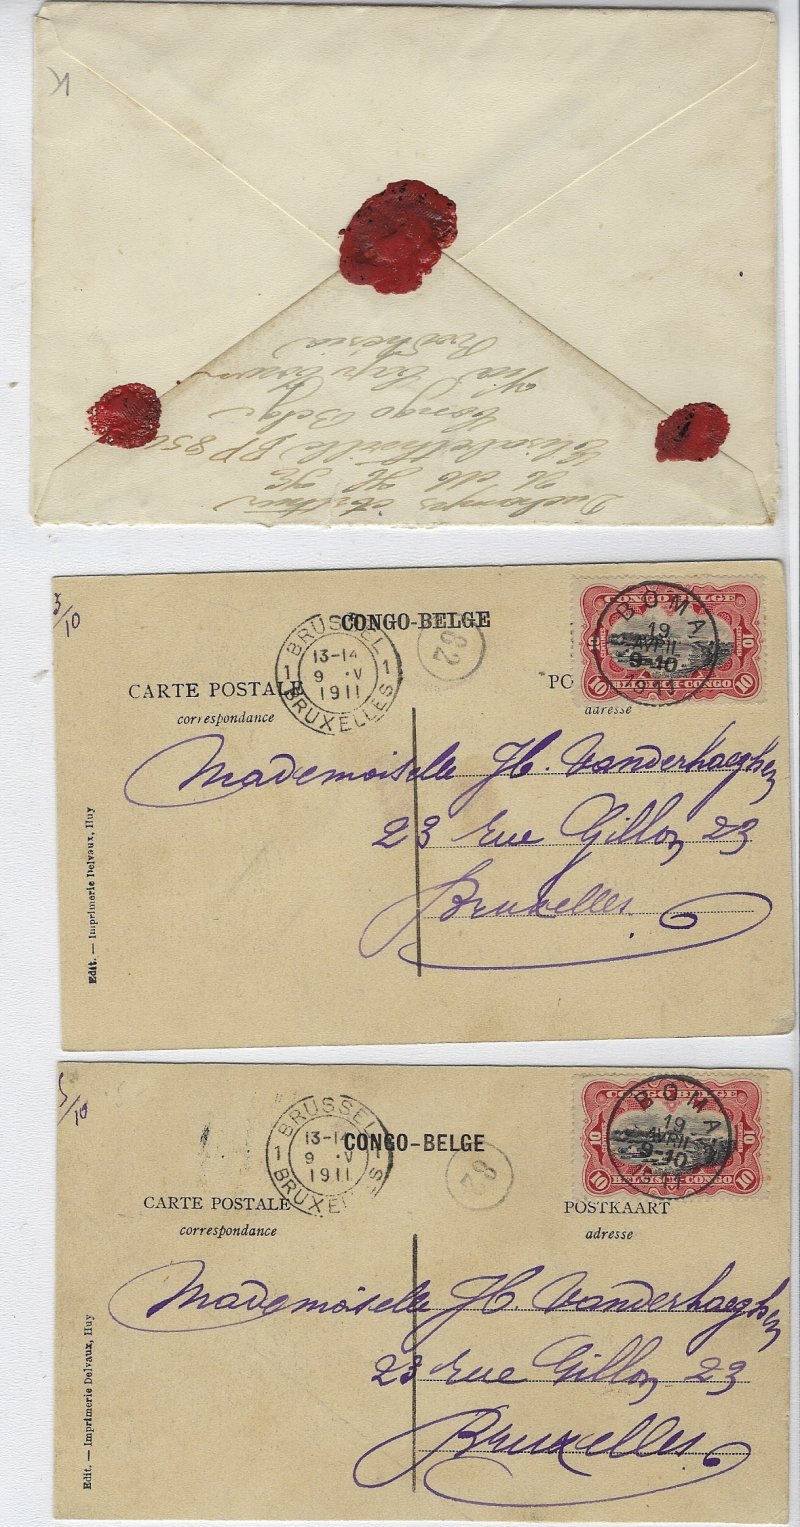 K
Duchamps
Elisabethville BP 854
Congo Belge
via Cape Town
Rodhesia
5/10
CONGO-BELGE
BRUSSEL
1 13-14 1
9 V
1911
BRUXELLES
82
CONGO BELGE
10 10
BELGISCH CONGO
BOMA
19
AVRIL
9-10
1911
CARTE POSTALE
PO
correspondance
adresse
Mademoiselle H. Vanderhaeghen
23 rue Gillon 23
Bruxelles.
Edit. — Imprimerie Delvaux, Huy
5/10
CONGO-BELGE
BRUSSEL
1 13-14 1
9 V
1911
BRUXELLES
82
CONGO BELGE
10 10
10 10
BELGISCH CONGO
BOMA
19
AVRIL
9-10
1911
CARTE POSTALE
POSTKAART
correspondance
adresse
Mademoiselle H. Vanderhaeghen
23 rue Gillon 23
Bruxelles.
Edit. — Imprimerie Delvaux, Huy